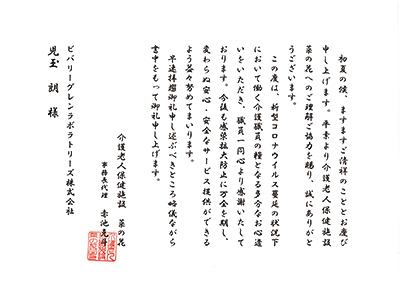 初夏の候、ますますご清祥のこととお慶び
申し上げます。平素より介護老人保健施設
菜の花へのご理解ご協力を賜り、誠にありがと
うございます。
この度は、新型コロナウイルス蔓延の状況下
において働く介護職員の糧となる多分なお心遣
いをいただき、職員一同心より感謝いたして
おります。今後も感染拡大防止に万全を期し、
変わらぬ安心・安全なサービス提供ができる
よう益々努めてまいります。
早速拝趨御礼申し述ぶべきところ略儀ながら
書中をもって御礼申し上げます。
介護老人保健施設 菜の花
事務長代理 赤池
ビバリーグレンラボラトリーズ株式会社
児玉 朗 様